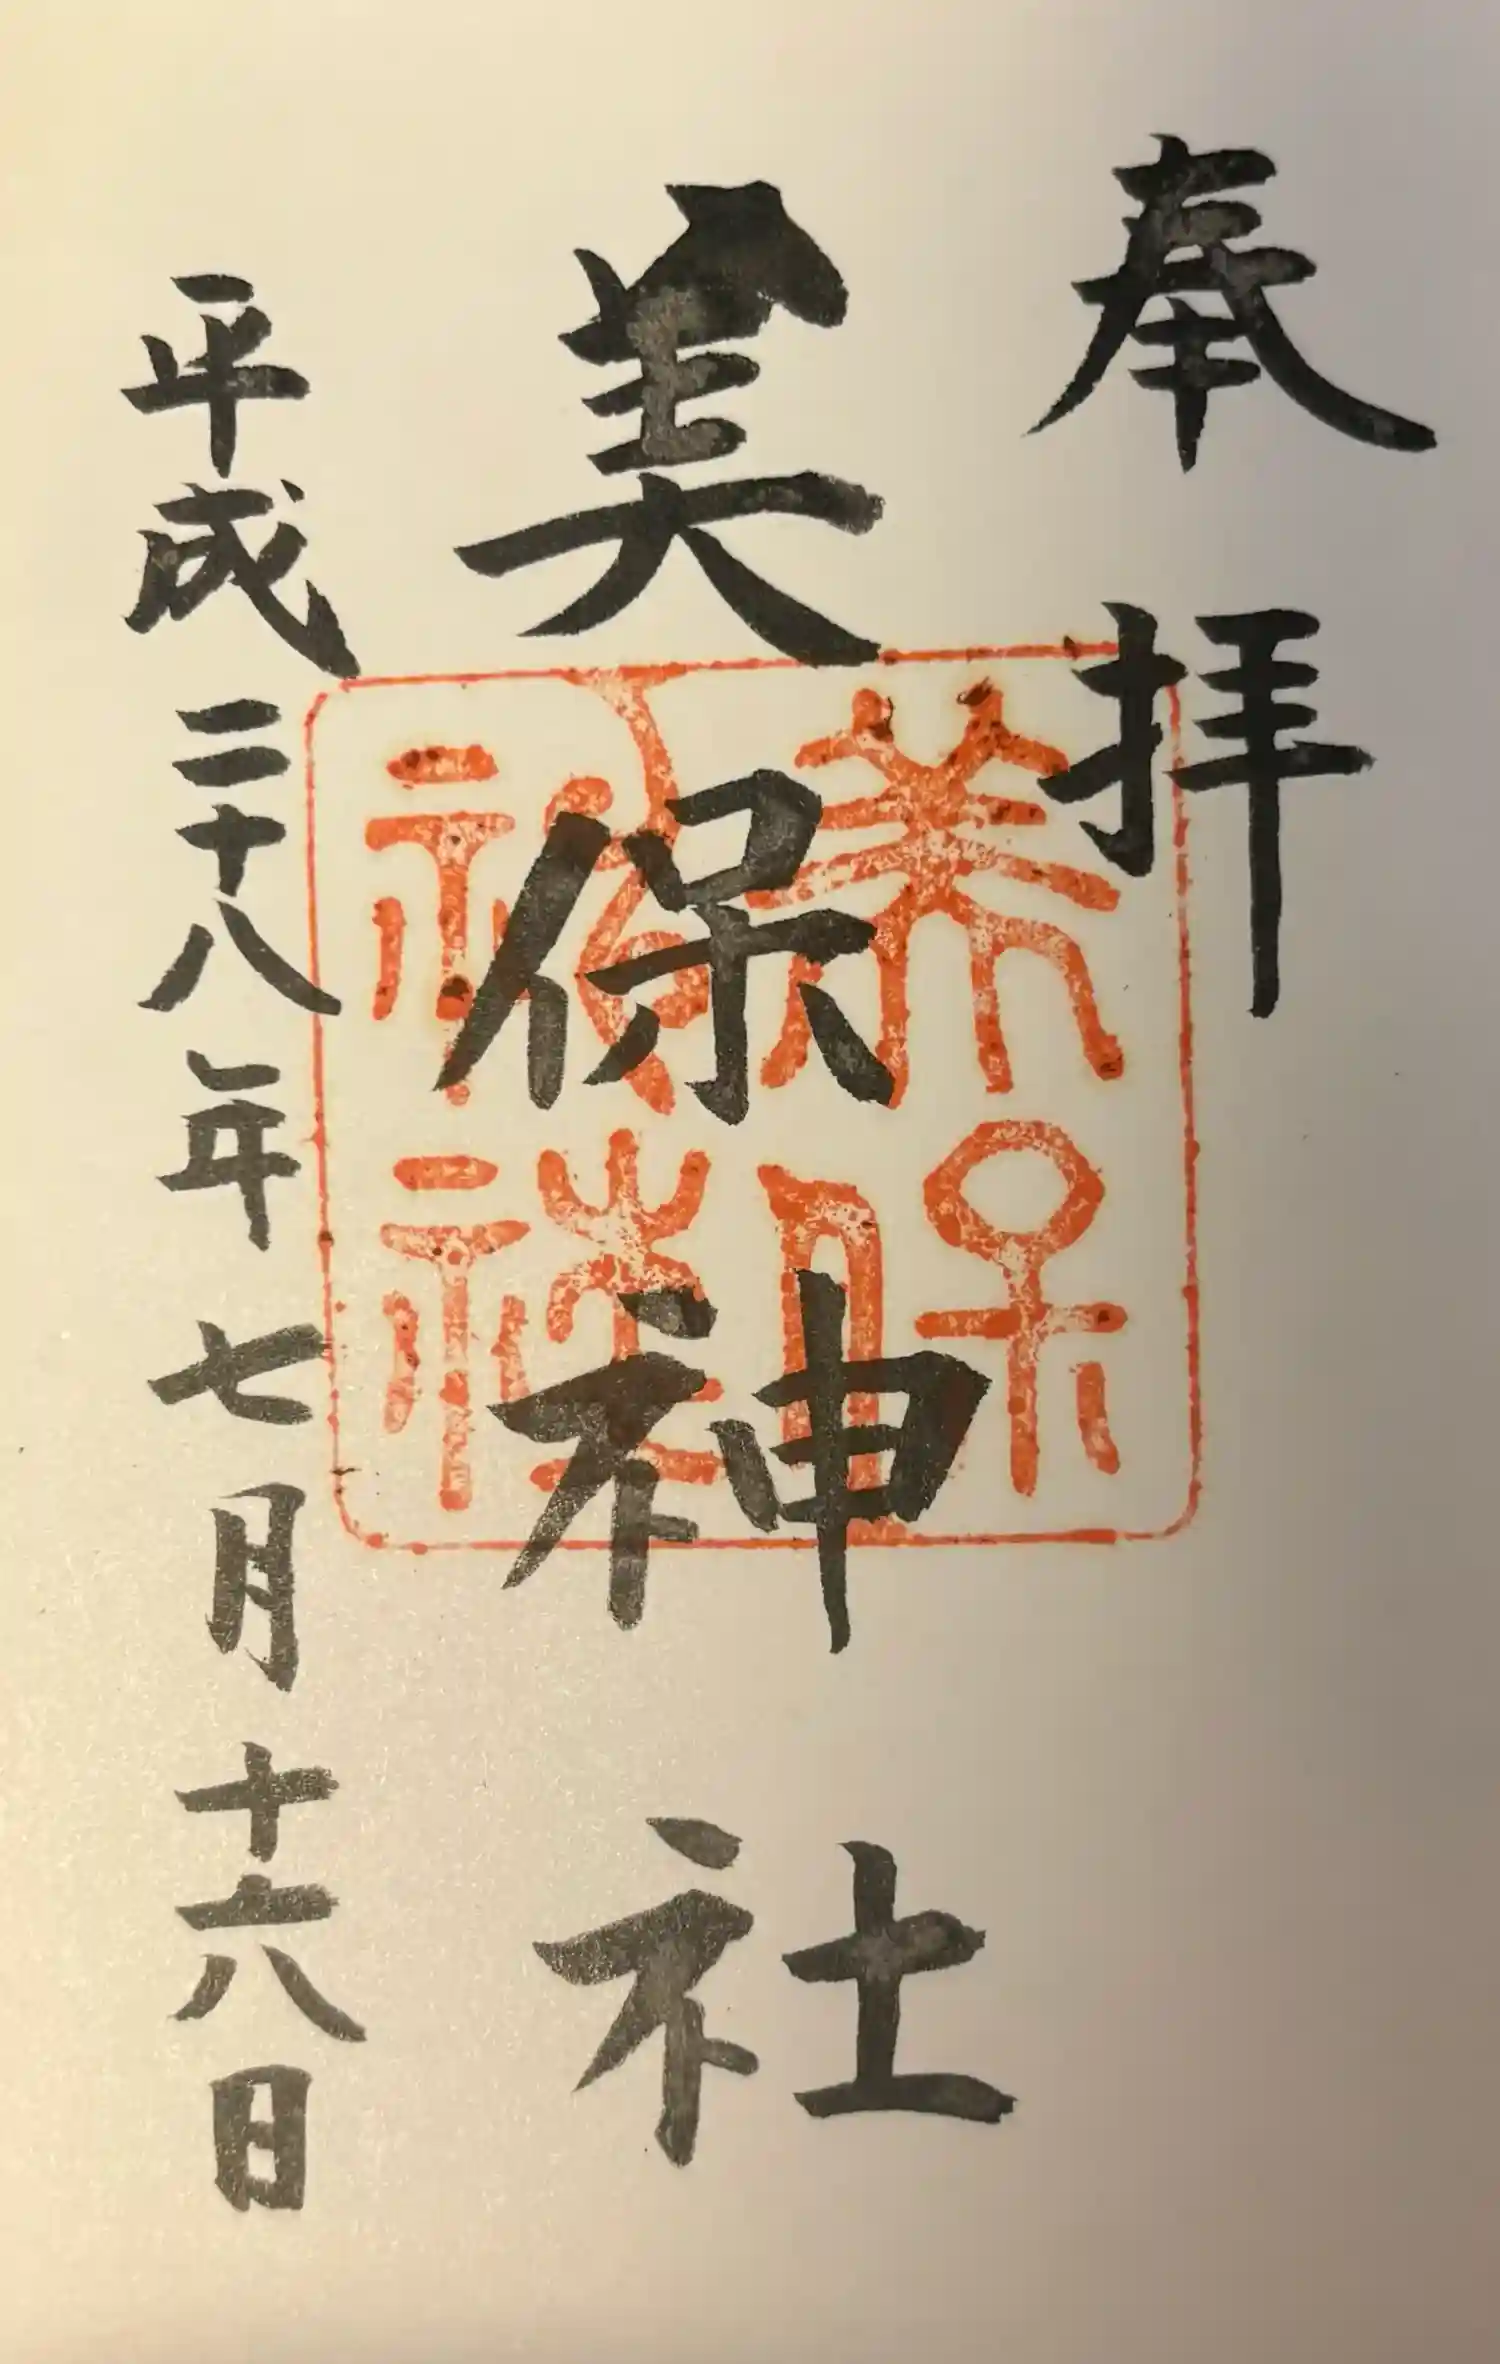 奉拝
美保神社
平成二十八年七月十六日
美保